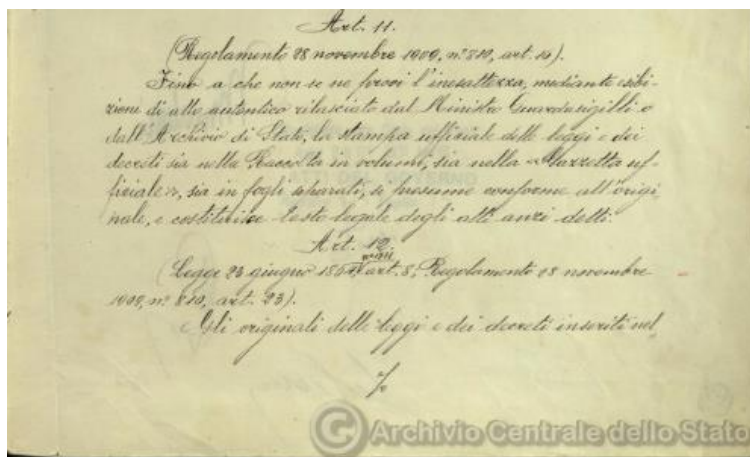 Art. 11.
(Regolamento 28 novembre 1909, n.° 810, art. 14).
Fino a che non se ne provi l'inesattezza, mediante esibi-
zione di atto autentico rilasciato dal Ministro Guardasigilli o
dall'Archivio di Stato, la stampa ufficiale delle leggi e dei
decreti sia nella Raccolta in volumi, sia nella «Gazzetta uf-
ficiale», sia in fogli separati, si presume conforme all'origi
nale, e costituisce testo legale degli atti anzi detti.
Art. 12
(Legge 23 giugno 1854, art. 8; Regolamento 28 novembre
1909, n.° 810, art. 23).
Gli originali delle leggi e dei decreti inseriti nel
%
© Archivio Centrale dello Stato